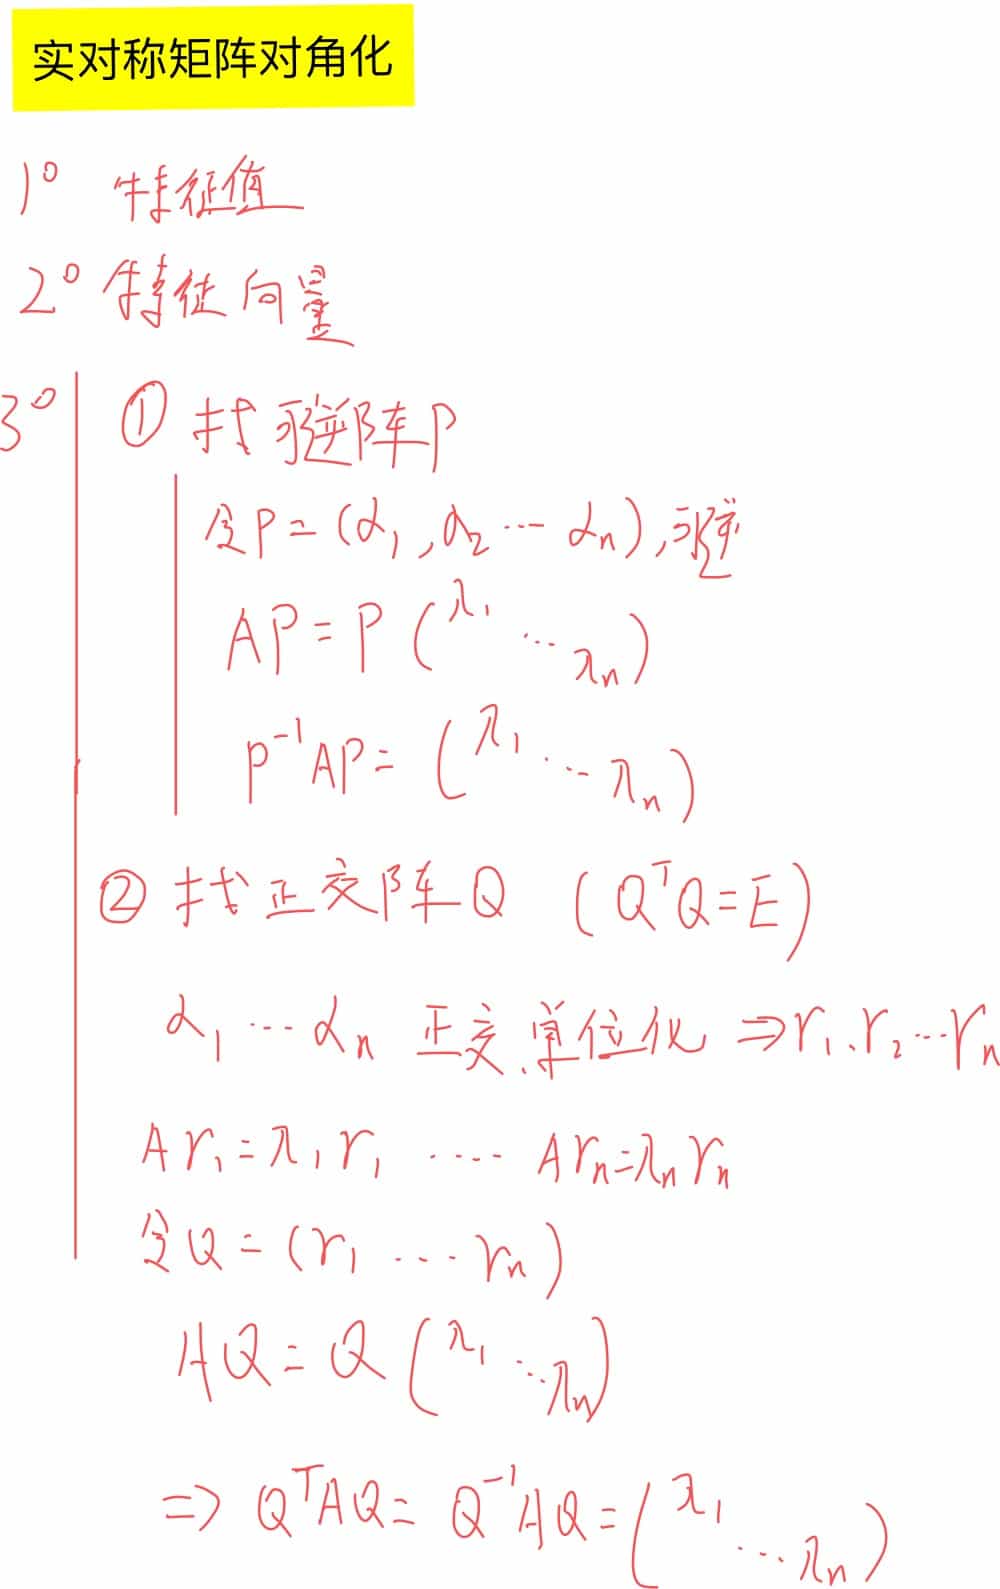 实对称矩阵对角化
1° 特征值
2° 特征向量
3° ① 找可逆阵P
令P=(α₁,α₂…αn),可逆
AP=P(λ₁…λn)
P⁻¹AP=(λ₁…λn)
② 找正交阵Q (QᵀQ=E)
α₁…αn 正交、单位化 ⇒r₁、r₂…rn
Ar₁=λ₁r₁ …. Arn=λnrn
令Q=(r₁…rn)
AQ=Q(λ₁…λn)
⇒QᵀAQ=Q⁻¹AQ=(λ₁…λn)